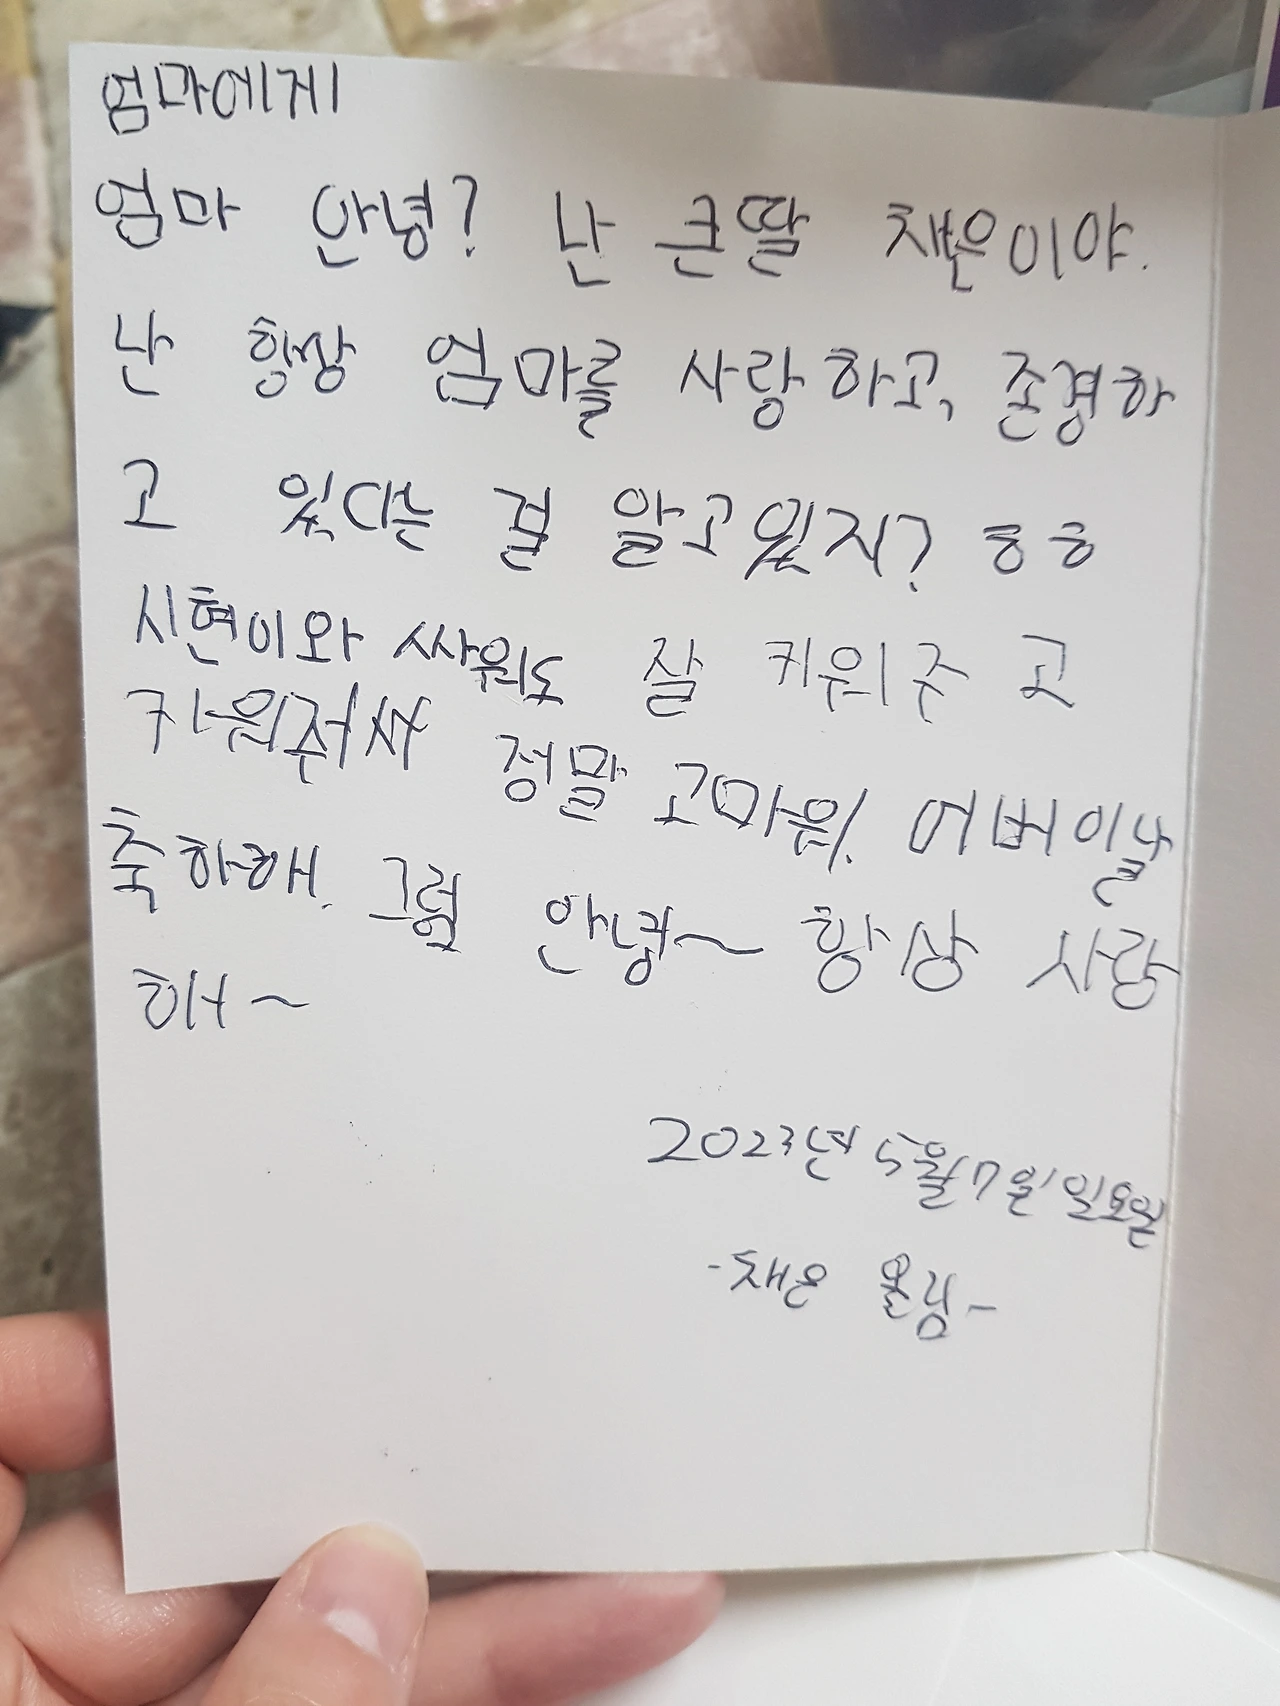 엄마에게
엄마 안녕? 난 큰딸 채은이야.
난 항상 엄마를 사랑하고, 존경하
고 있다는 걸 알고있지? ㅎㅎ
시현이와 싸워도 잘 키워주고
키워주셔서 정말 고마워. 어버이날
축하해. 그럼 안녕~ 항상 사랑
해~
2023년 5월 7일 일요일
-채은 올림-